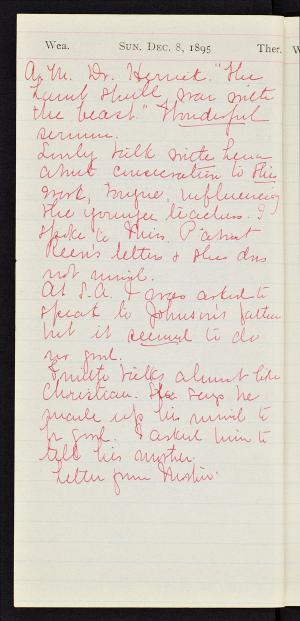 Wea. SUN. DEC. 8, 1895 Ther.
A.M. Dr. Herrick. "The
Lamb shall war with
the beast." Wonderful
sermon.
Lovely talk with
about consecration to this
work, tongue, influencing
the younger teachers. I
spoke to Miss P about
letter & she does
not mind.
At S.A. I was asked to
speak to Johnson's father
but it seemed to do
no good.
Smith talks almost like
Christian. He says he
made up his mind to
be good. I asked him to
tell his mother.
Letter from